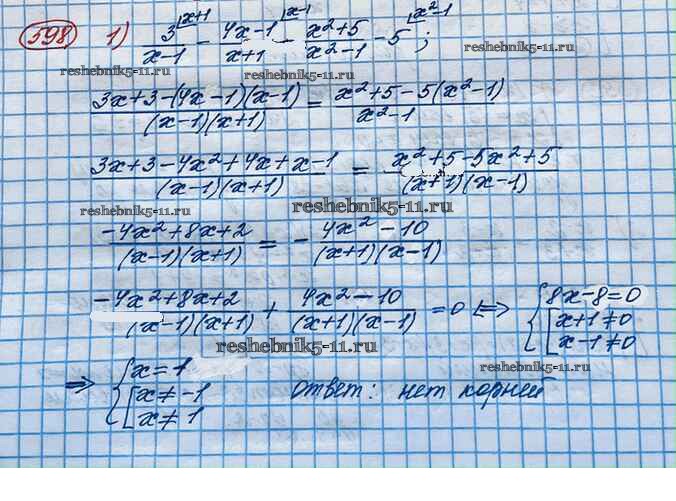 598 1) 3^{|x+1}/(x-1) - (4x-1^{|x-1})/(x+1) - (x²+5)/(x²-1) - 5^{|x²-1};
reshebnik5-11.ru reshebnik5-11.ru
(3x+3-(4x-1)(x-1))/((x-1)(x+1)) = (x²+5-5(x²-1))/(x²-1)
(3x+3-4x²+4x+x-1)/((x-1)(x+1)) = (x²+5-5x²+5)/((x+1)(x-1))
reshebnik5-11.ru reshebnik5-11.ru
(-4x²+8x+2)/((x-1)(x+1)) = -(4x²-10)/((x+1)(x-1))
(-4x²+8x+2)/((x-1)(x+1)) + (4x²-10)/((x+1)(x-1)) = 0 ⇔ { 8x-8=0 [ x+1≠0 x-1≠0
reshebnik5-11.ru reshebnik5-11.ru
⇒ { x=1 [ x≠-1 x≠1 ответ: нет корней
reshebnik5-11.ru